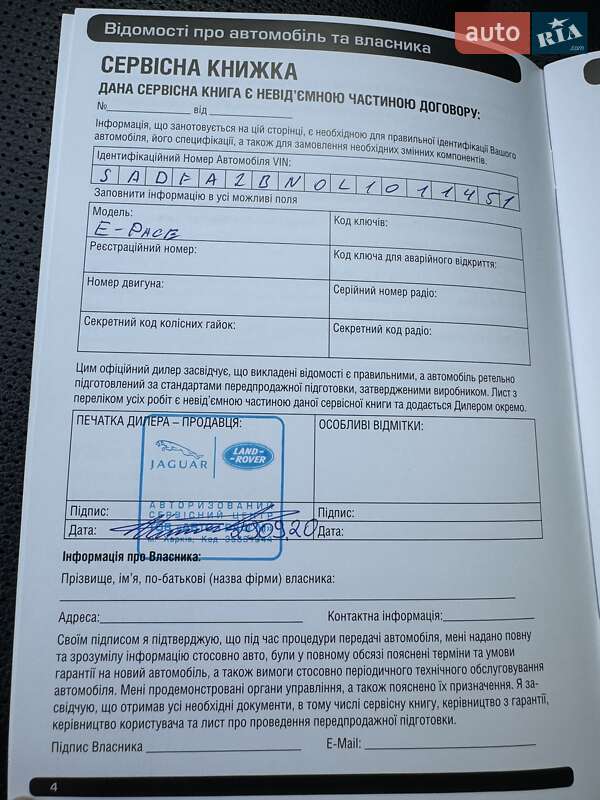 Відомості про автомобіль та власника
auto RIA .com
СЕРВІСНА КНИЖКА
ДАНА СЕРВІСНА КНИГА Є НЕВІД'ЄМНОЮ ЧАСТИНОЮ ДОГОВОРУ:
№ від
Інформація, що занотовується на цій сторінці, є необхідною для правильної ідентифікації Вашого
автомобіля, його специфікації, а також для замовлення необхідних змінних компонентів.
Ідентифікаційний Номер Автомобіля VIN:
SADFA2BN0L1011451
Заповнити інформацію в усі можливі поля
Модель: Код ключів:
E-PACE
Реєстраційний номер: Код ключа для аварійного відкриття:
Номер двигуна: Серійний номер радіо:
Секретний код колісних гайок: Секретний код радіо:
Цим офіційний дилер засвідчує, що викладені відомості є правильними, а автомобіль ретельно
підготовлений за стандартами передпродажної підготовки, затвердженими виробником. Лист з
переліком усіх робіт є невід'ємною частиною даної сервісної книги та додається Дилером окремо.
ПЕЧАТКА ДИЛЕРА – ПРОДАВЦЯ: ОСОБЛИВІ ВІДМІТКИ:
JAGUAR LAND-ROVER
АВТОРИЗОВАНИЙ
СЕРВІСНИЙ ЦЕНТР
Підпис: Підпис:
Дата: Дата:
м. Харків, Код
Інформація про Власника:
Прізвище, ім'я, по-батькові (назва фірми) власника:
Адреса: Контактна інформація:
Своїм підписом я підтверджую, що під час процедури передачі автомобіля, мені надано повну
та зрозумілу інформацію стосовно авто, були у повному обсязі пояснені терміни та умови
гарантії на новий автомобіль, а також вимоги стосовно періодичного технічного обслуговування
автомобіля. Мені продемонстровані органи управління, а також пояснено їх призначення. Я за-
свідчую, що отримав усі необхідні документи, в тому числі сервісну книгу, керівництво з гарантії,
керівництво користувача та лист про проведення передпродажної підготовки.
Підпис Власника E-Mail:
4